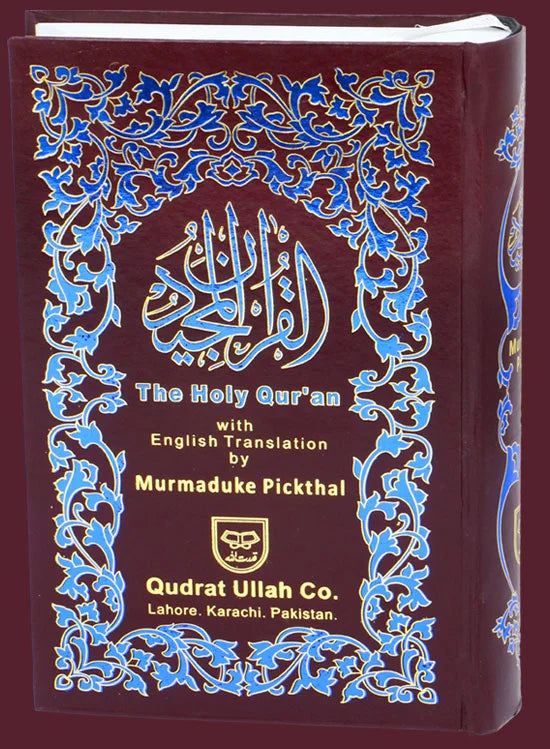 القرآن المجيد
The Holy Qur'an
with
English Translation
by
Murmaduke Pickthal
Qudrat Ullah Co.
Lahore. Karachi. Pakistan.